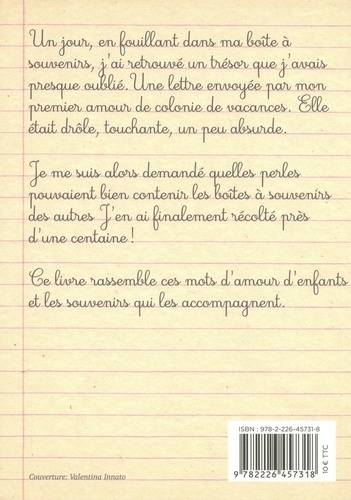 Un jour, en fouillant dans ma boîte à
souvenirs, j'ai retrouvé un trésor que j'avais
presque oublié. Une lettre envoyée par mon
premier amour de colonie de vacances. Elle
était drôle, touchante, un peu absurde.
Je me suis alors demandé quelles perles
pouvaient bien contenir les boîtes à souvenirs
des autres. J'en ai finalement récolté près
d'une centaine !
Ce livre rassemble ces mots d'amour d'enfants
et les souvenirs qui les accompagnent.
ISBN : 978-2-226-45731-8
9 782226 457318
10 € TTC
Couverture: Valentina Innato